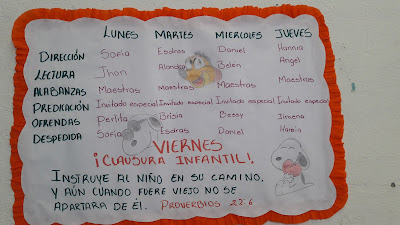 LUNES MARTES MIERCOLES JUEVES
DIRECCIÓN Sofia Esdras Daniel Hannia
LECTURA Jhon Alondra Belén Angel
ALABANZAS Maestras Maestras Maestras Maestras
PREDICACIÓN Invitado especial Invitado especial Invitado especial Invitado especial
OFRENDAS Perlita Brisia Bessy Jimena
DESPEDIDA Sofia Esdras Daniel Hannia
VIERNES
¡CLAUSURA INFANTIL!.
INSTRUYE AL NIÑO EN SU CAMINO,
Y AÚN CUANDO FUERE VIEJO NO SE
APARTARA DE ÉL. PROVERBIOS 22:6